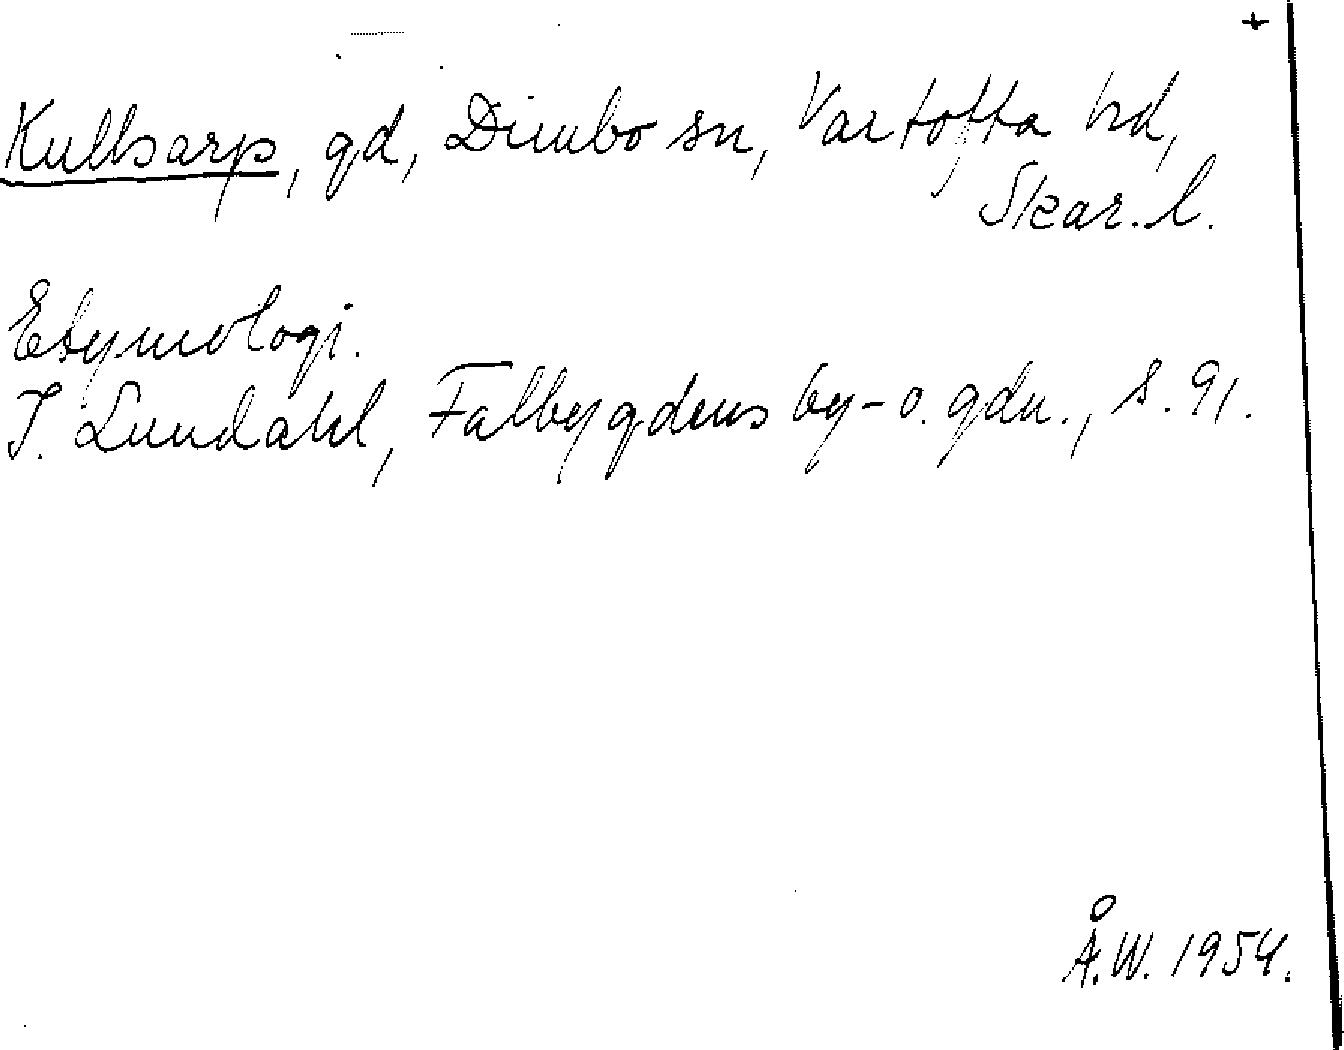 +
Kullsarp, gd, Dimbo sn, Vartofta hd,
Skar. l.
Etymologi.
I. Lundahl, Falbygdens by- o. gdn., s. 91.
Å.W. 1954.